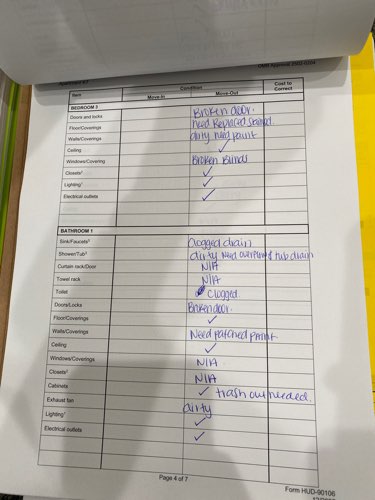 OMB Approval 2502-0204
Item Condition Cost to Correct
Move-In Move-Out
BEDROOM 3
Doors and locks Broken door.
Floor/Coverings need Replaced stained.
Walls/Coverings dirty need paint
Ceiling ✓
Windows/Covering Broken Blinds
Closets² ✓
Lighting¹ ✓
Electrical outlets ✓
BATHROOM 1
Sink/Faucets³ Clogged drain
Shower/Tub³ dirty need overflow & tub drain
Curtain rack/Door N/A
Towel rack N/A
Toilet Clogged
Doors/Locks Broken door.
Floor/Coverings ✓
Walls/Coverings Need patched paint
Ceiling ✓
Windows/Coverings N/A
Closets² N/A
Cabinets ✓ trash out needed.
Exhaust fan dirty
Lighting¹ ✓
Electrical outlets ✓
Page 4 of 7
Form HUD-90106